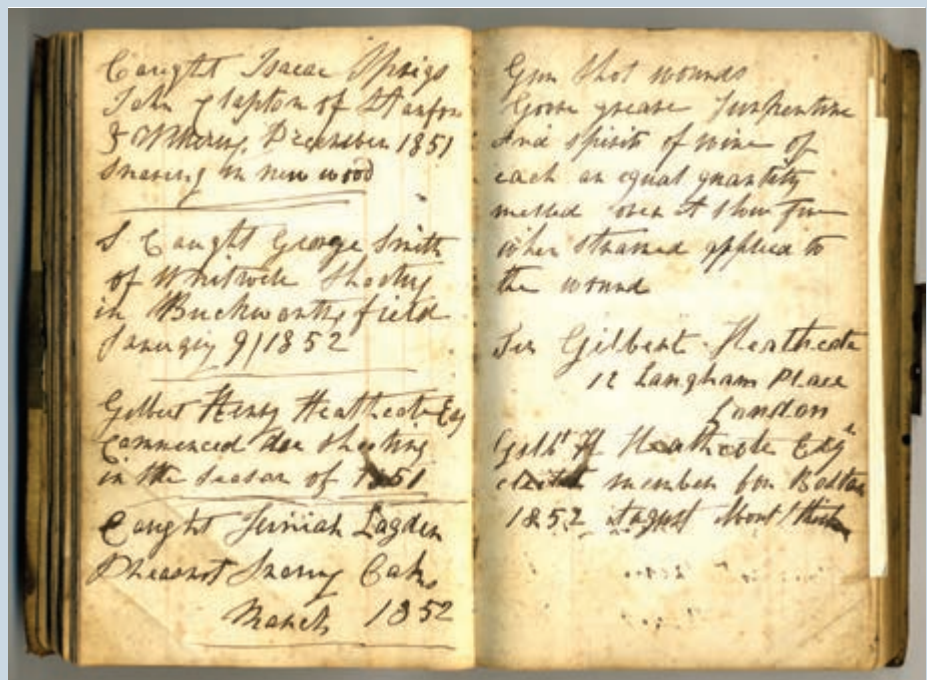 Caught Isacac Sprigs
John Clapton of Stanfor
December 1851
Snaring in new wood
I Caught George Smith
of Whitwell Shooting
in Buckworths field
January 9 1852
Gilbert Henry Heathcote Esq
Commenced doe Shooting
in the Season of 1851
Caught Jeriniah Lagden
Pheasant Snaring
March 1852
Gun Shot wounds
Goose grease Turpentine
And spirits of wine of
each an equal quantity
melted over A Slow fire
when Strained applied to
the wound
Sir Gilbert Heathcote
12 Langham Place
London
Gilbt H Heathcote Esqr
elected member for Bolton
1852 August About I think